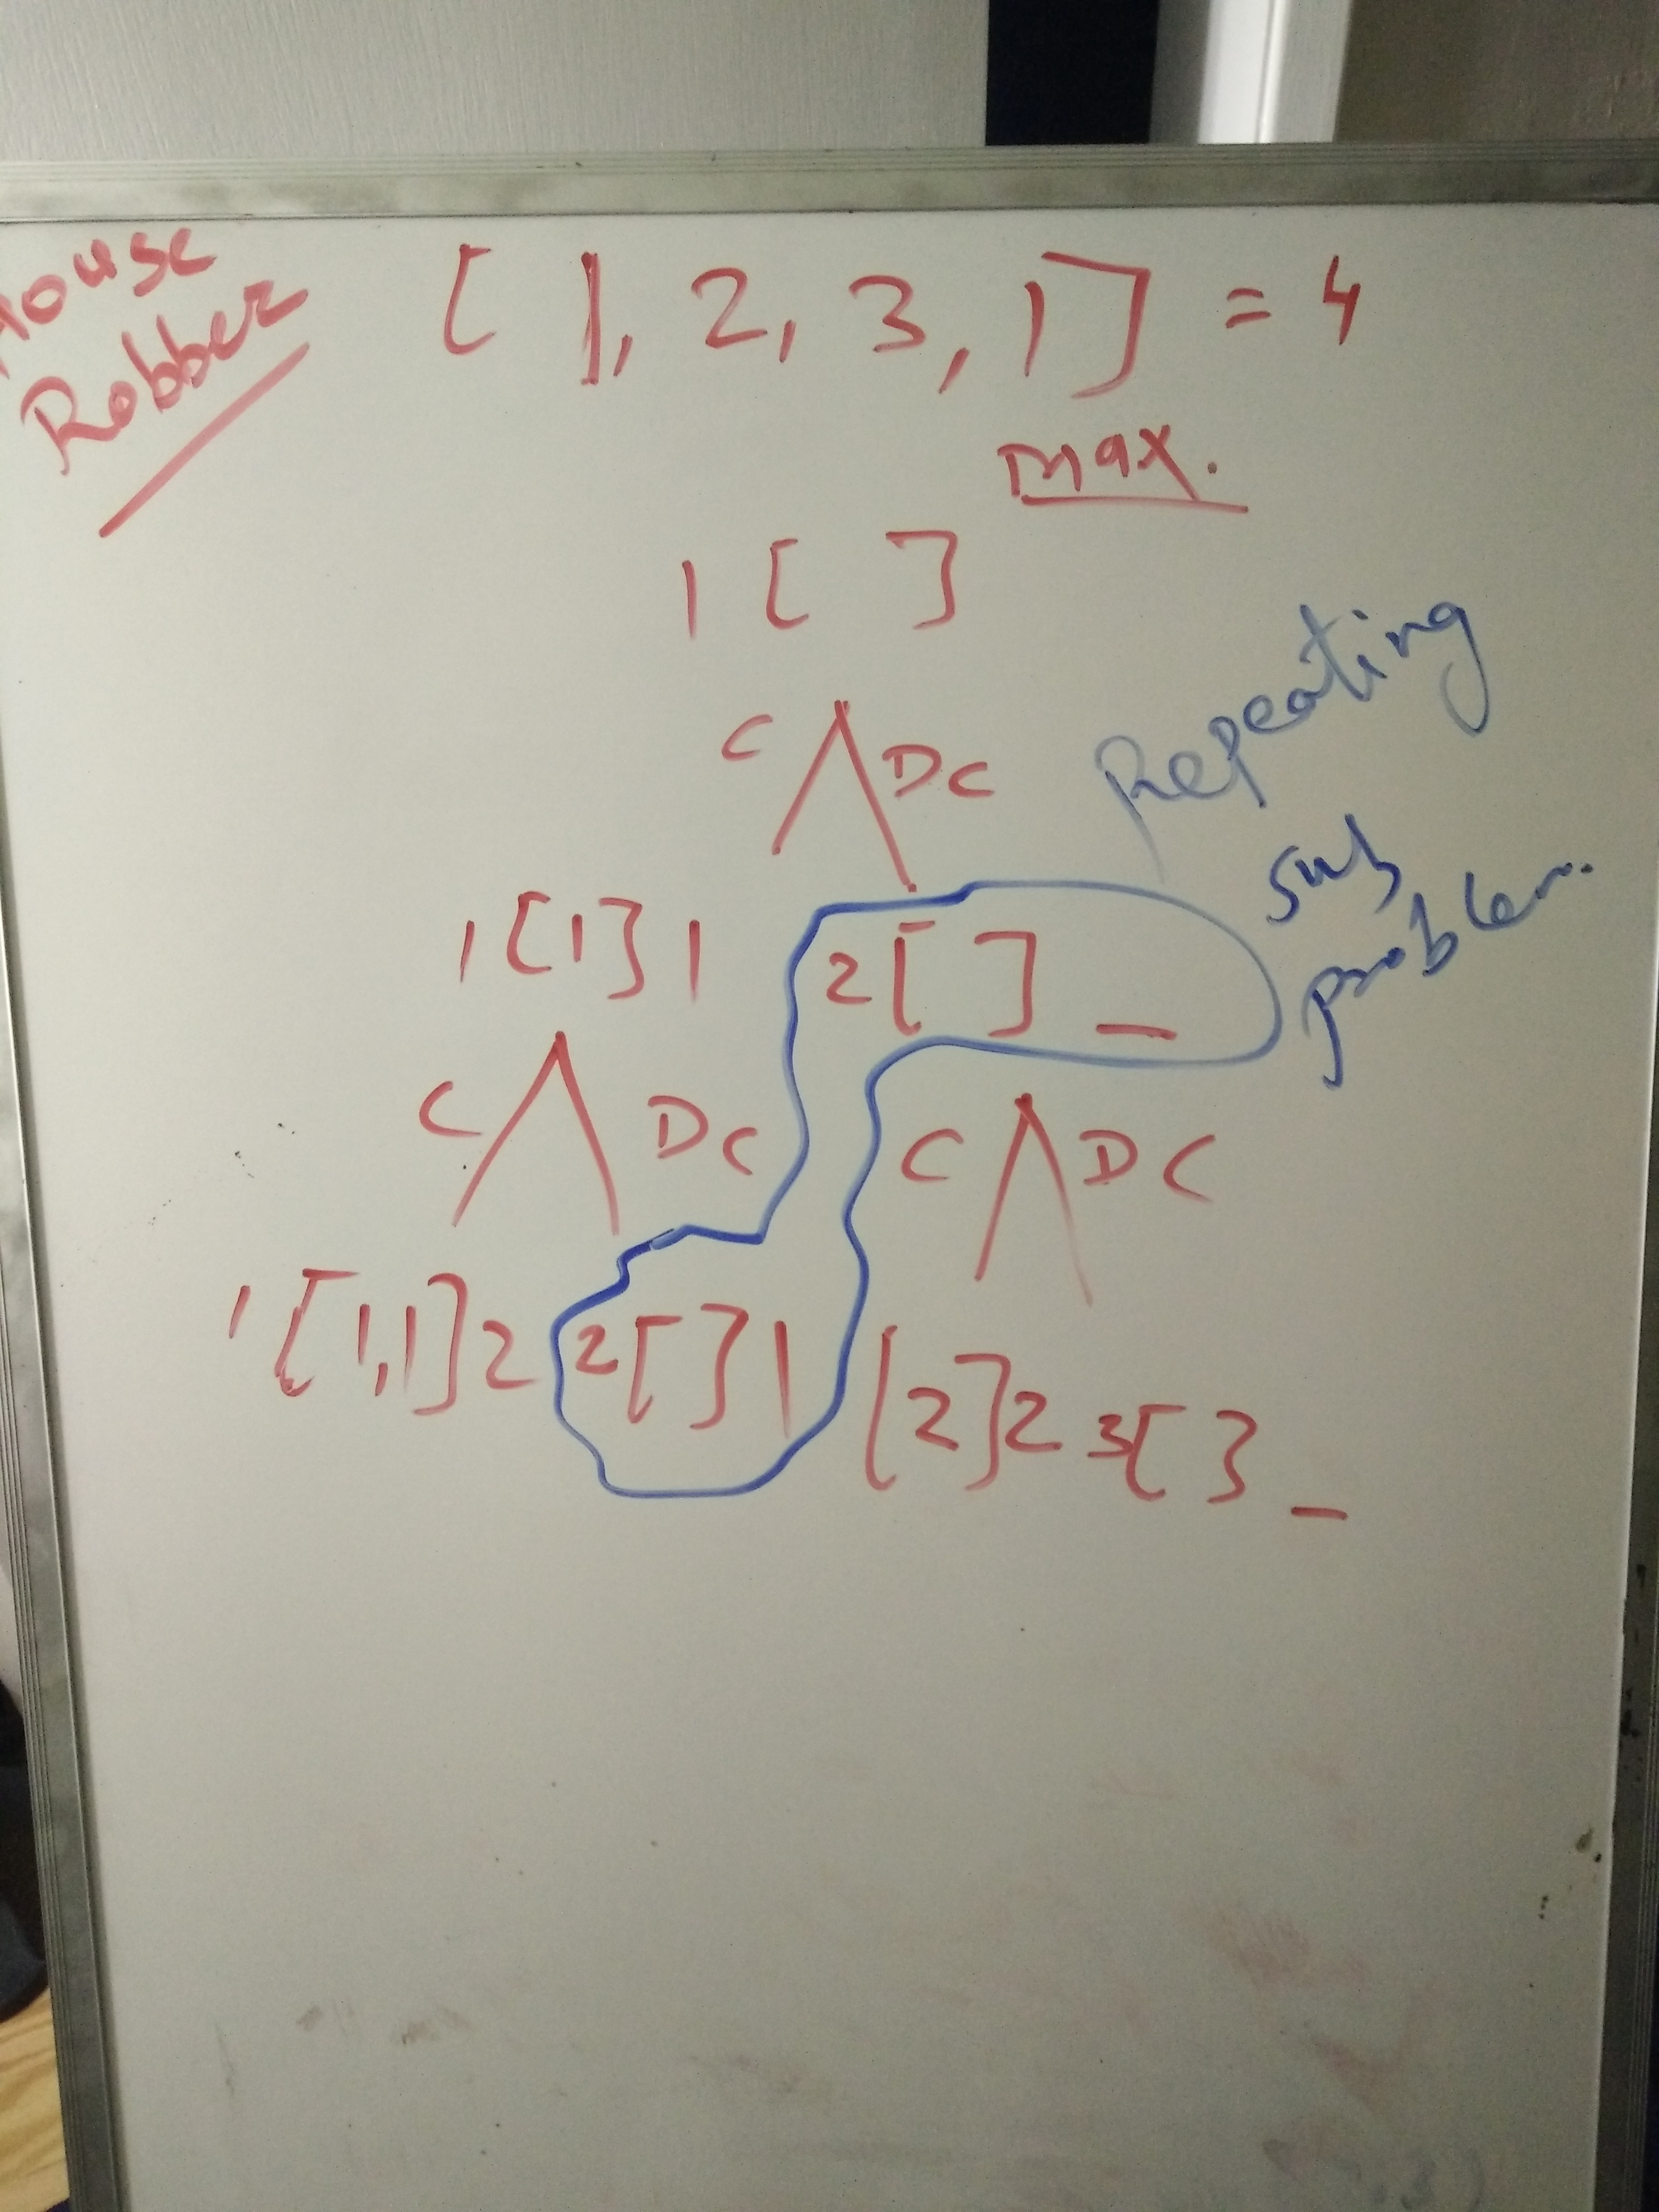 House
Robber
[1, 2, 3, 1] = 4
max.
1 [ ]
C DC
Repeating
sub
problem.
1 [1] 1
2 [ ] _
C DC
C DC
1 [1,1] 2
2 [ ] 1
[2] 2
3 [ ] _